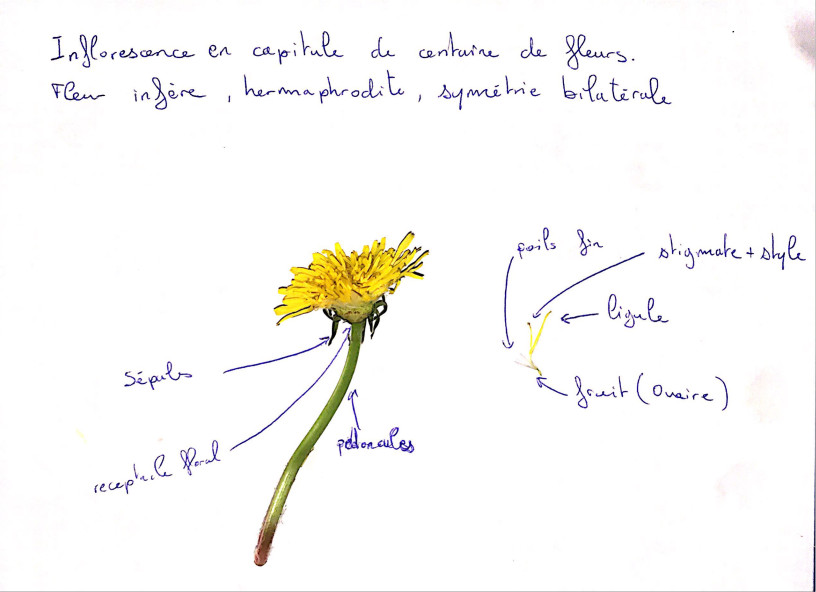 Inflorescence en capitule de centaine de fleurs.
Fleur infère, hermaphrodite, symétrie bilatérale
poils fin
stigmate + style
ligule
Sépals
fruit (Ovaire)
pédoncules
receptacle floral